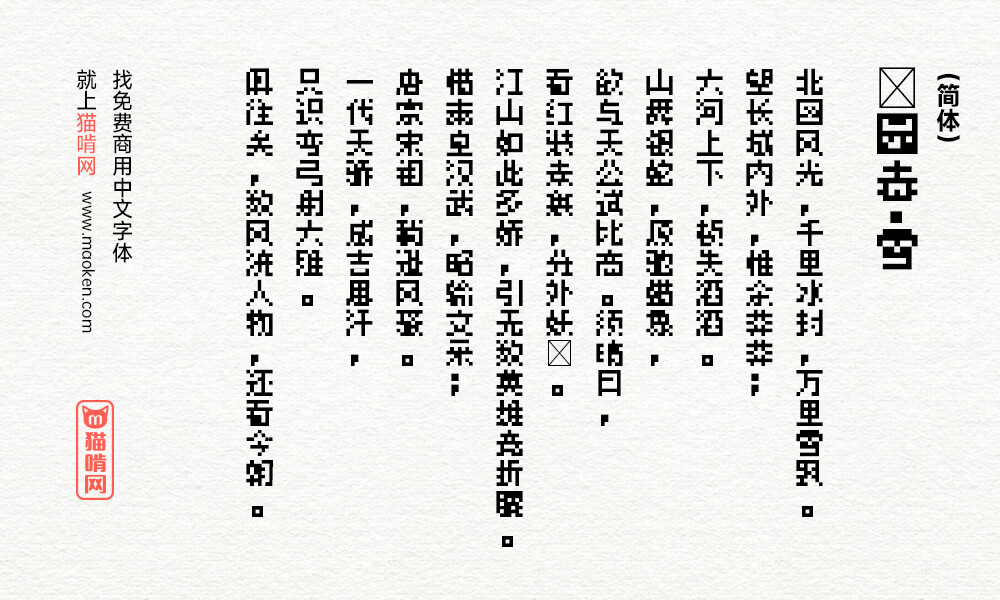 (简体)
园春·雪
北国风光，千里冰封，万里雪飘。
望长城内外，惟余莽莽；
大河上下，顿失滔滔。
山舞银蛇，原驰蜡象，
欲与天公试比高。须晴日，
看红装素裹，分外妖。
江山如此多娇，引无数英雄竞折腰。
惜秦皇汉武，略输文采；
唐宗宋祖，稍逊风骚。
一代天骄，成吉思汗，
只识弯弓射大雕。
俱往矣，数风流人物，还看今朝。
找免费商用中文字体
就上猫啃网 www.maoken.com
猫啃网